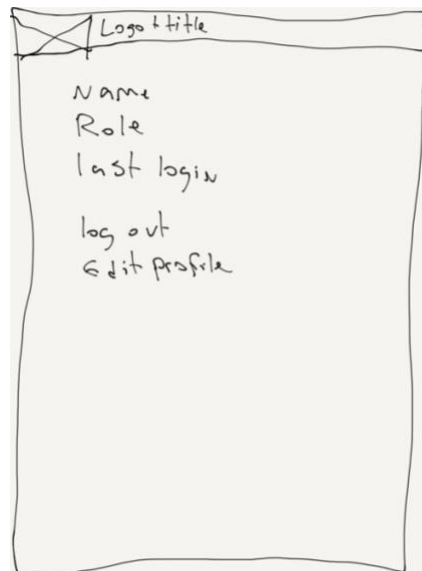 Logo + title
Name
Role
last login
log out
Edit profile